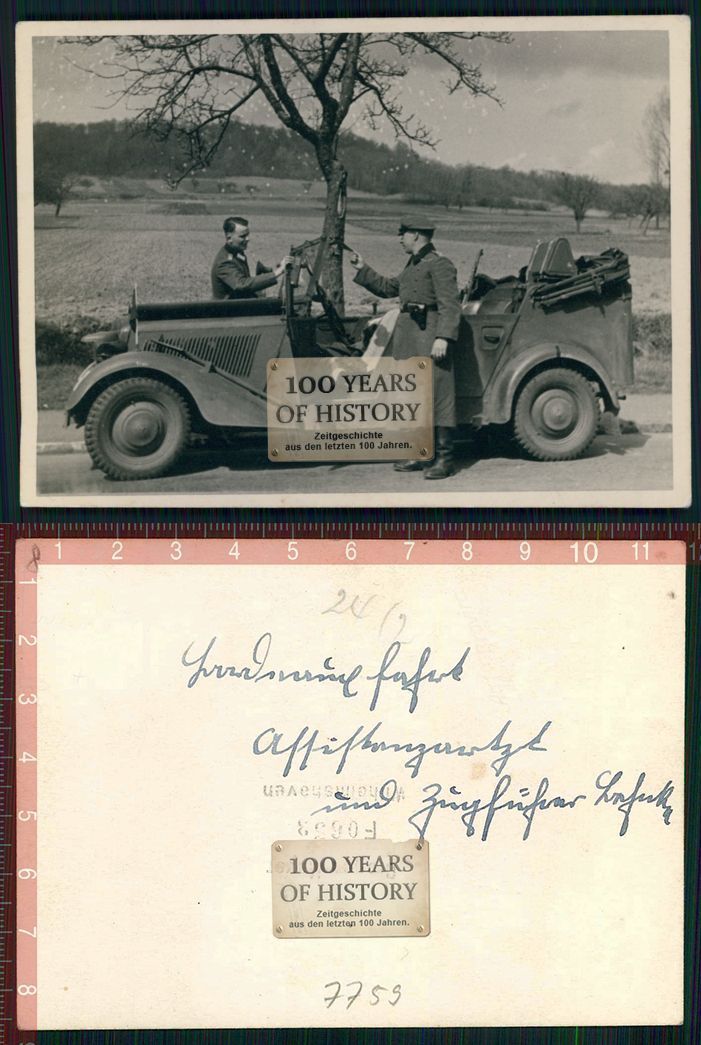 100 YEARS
OF HISTORY
Zeitgeschichte
aus den letzten 100 Jahren.
8
1 2 3 4 5 6 7 8 9 10 11
1
2
3
4
5
6
7
8
24
Bordeauxfahrt
Assistenzartzt
und Zugführer Behnk
Wilhelmshaven
F0652
100 YEARS
OF HISTORY
Zeitgeschichte
aus den letzten 100 Jahren.
7759